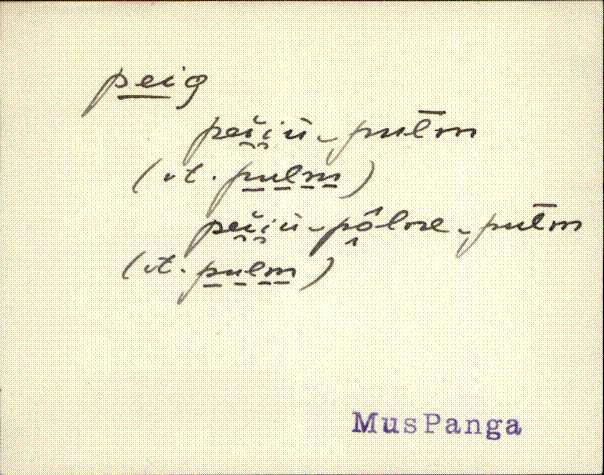 peig
pei̯i̯ù-pul̄m
(vt. pulm)
pei̯i̯ù-pô̭lve-pul̄m
(vt. pulm)
MusPanga